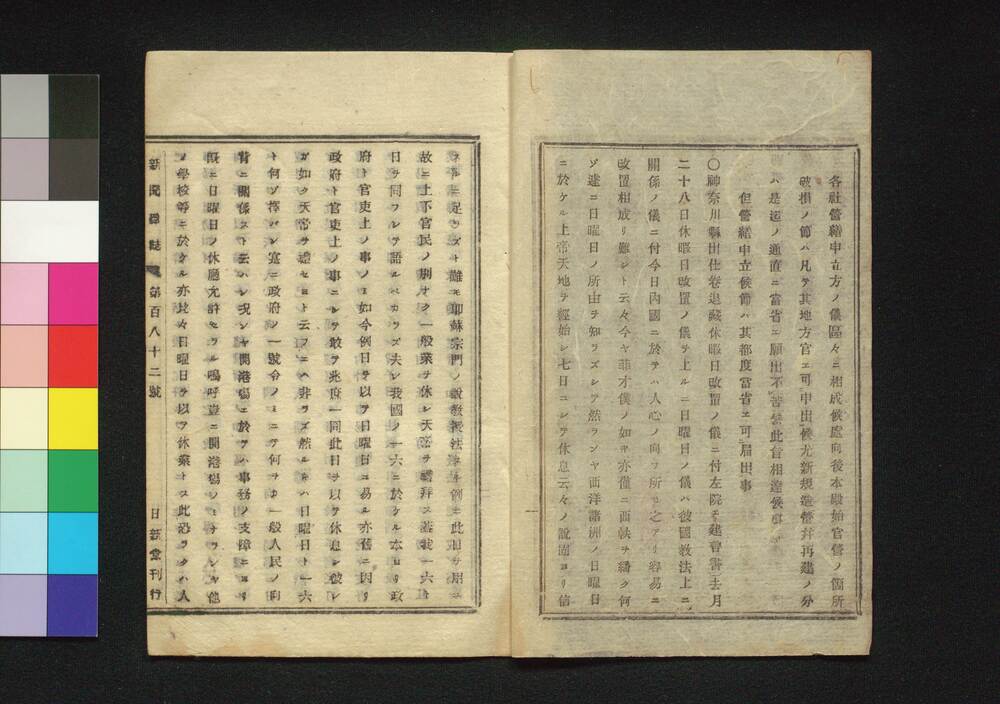 各社營繕申立方ノ儀區々ニ相成候處向後本殿始官營ノ箇所
破損ノ節ハ凡テ其地方官ヱ可申出候尤新規造營幷再建ノ分
ハ是迄ノ通直ニ當省ヱ願出不苦候此旨相達候事
但營繕申立候節ハ其都度當省ヱ可屆出事
〇神奈川縣出仕卷退藏休暇日改置ノ儀ニ付左院ヱ建言書去月
二十八日休暇日改置ノ儀ヲ上ル二日曜日ノ儀ハ彼國敎法上ニ
關係ノ儀ニ付今日內國ニ於テハ人心ノ向フ所モ之アリ容易ニ
改置相成リ難シト云々今ヤ菲才僕ノ如キ亦僅ニ西帙ヲ繙ク何
ゾ遽ニ日曜日ノ所由ヲ知ラズシテ然ランヤ西洋諸洲ノ日曜日
ニ於ケル上帝天地ヲ經始シ七日ニシテ休息云々ノ說固ヨリ信
ズルニ足ラズト雖モ耶蘇宗門ノ說敎授法スル例ニ此日ヲ用ユ
故ニ土不官民ノ別ナク一般業ヲ休シ天帝ヲ禮拜ス蓋我一六ト
日ヲ同フシテ語ルベカラズ夫レ我國ノ一六ニ於ケル本ヨリ政
府ト官吏上ノ事ノミ如今例日ヲ以テ日曜日ニ易ル亦舊ニ因リ
政府ト官吏上ノ事ニシテ敢テ兆庶一同此日ヲ以テ休息シ彼レ
ガ如ク天帝ヲ禮セヨト云フニハ非ラズ然ルトキハ日曜日ト一六
ト何ゾ擇バン寔ニ政府ノ一號令ノミニテ何ヲカ一般人民ノ向
背ニ關係スト云ハン况ンヤ開港場ニ於テハ事務ノ支障ニヨリ
旣ニ日曜日ノ休廳允許セラル嗚呼豈ニ開港場ノミナランヤ他
ノ學校等ニ於ケル亦比々日曜日ヲ以テ休業トス此恐ラクハ人
新聞雜誌 第百八十二號 日新堂刊行